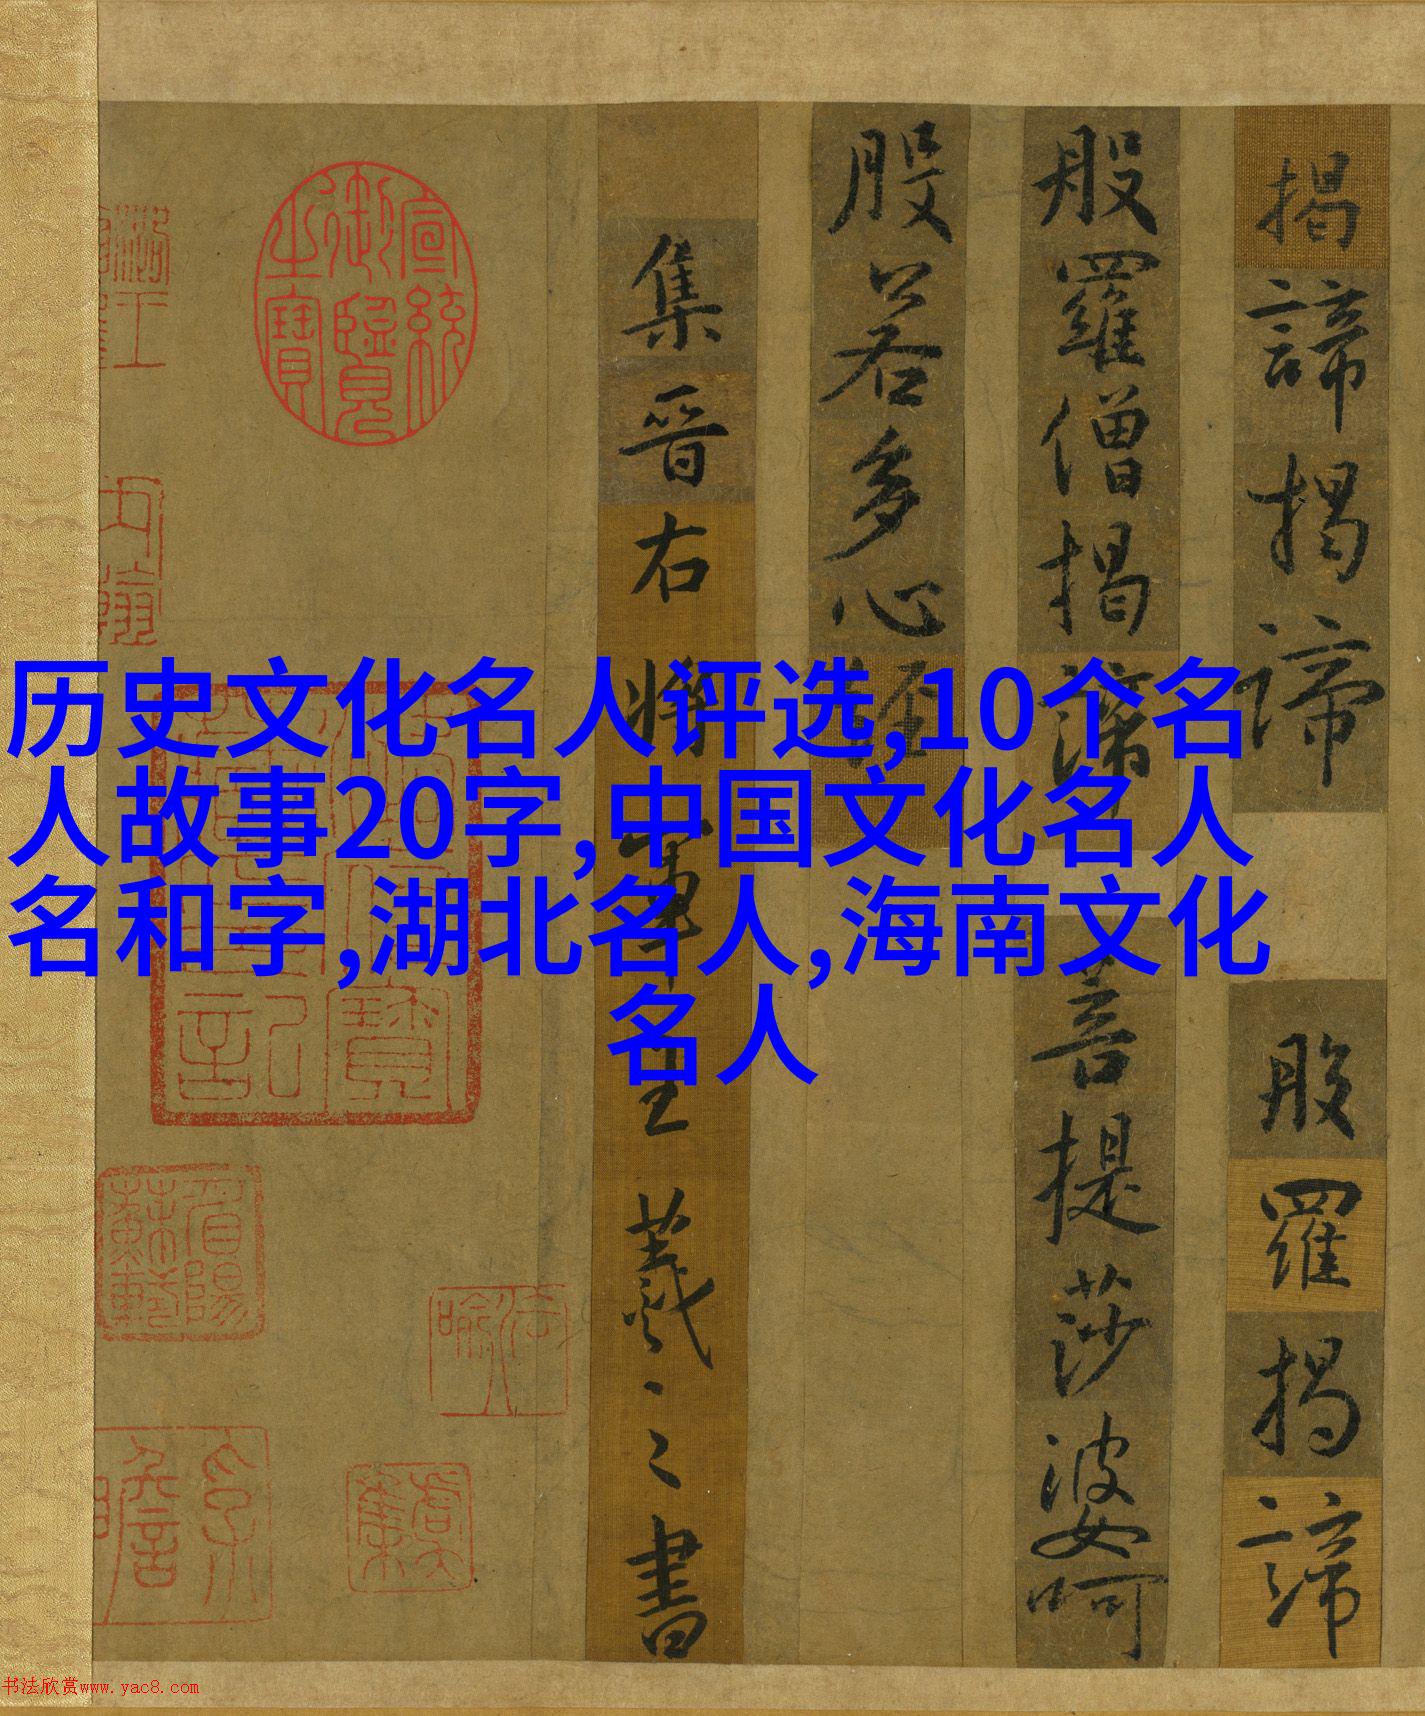 历史文化名人评选,10个名
人故事20字,中国文化名人
名和字,湖北名人,海南文化
名人
揭諦揭諦 般羅揭諦
般羅僧揭諦 菩提莎婆呵
般若多心經
集晉右將軍王羲之書
宣統御覽之寶
书法欣赏www.yac8.com